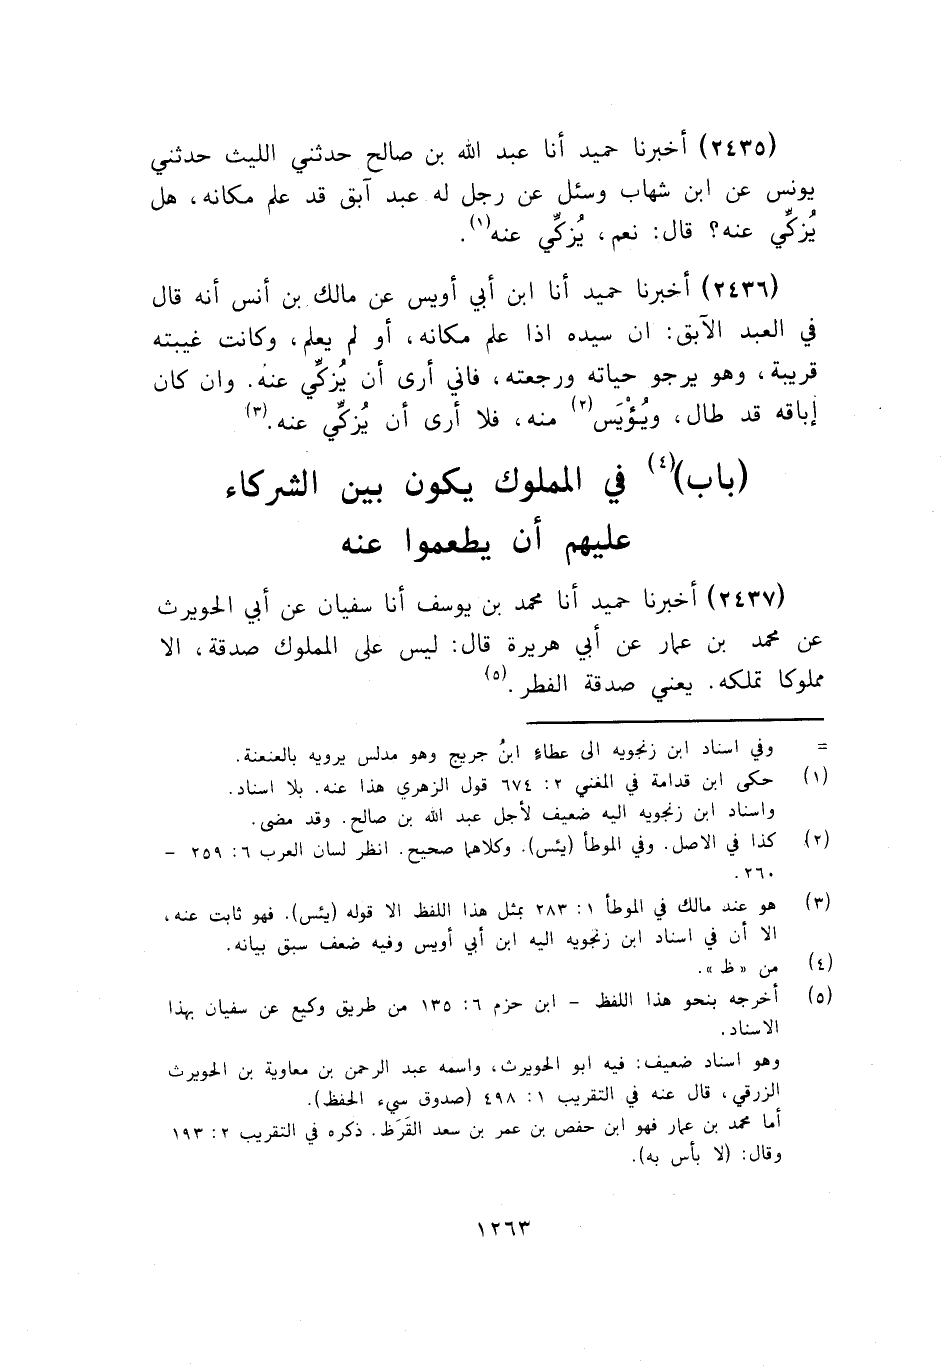 (٢٤٣٥) أخبرنا حميد أنا عبد الله بن صالح حدثني الليث حدثني
يونس عن ابن شهاب وسئل عن رجل له عبد آبق قد علم مكانه، هل
يُزكِّي عنه؟ قال: نعم، يُزكِّي عنه(١).
(٢٤٣٦) أخبرنا حميد أنا ابن أبي أويس عن مالك بن أنس أنه قال
في العبد الآبق: ان سيده اذا علم مكانه، أو لم يعلم، وكانت غيبته
قريبة، وهو يرجو حياته ورجعته، فاني أرى أن يُزكِّي عنه. وان كان
إباقه قد طال، ويُؤْيَس(٢) منه، فلا أرى أن يُزكِّي عنه.(٣)
(باب)(٤) في المملوك يكون بين الشركاء
عليهم أن يطعموا عنه
(٢٤٣٧) أخبرنا حميد أنا محمد بن يوسف أنا سفيان عن أبي الحويرث
عن محمد بن عمار عن أبي هريرة قال: ليس على المملوك صدقة، الا
مملوكا تملكه. يعني صدقة الفطر.(٥)
= وفي اسناد ابن زنجويه الى عطاءٍ ابنُ جريج وهو مدلس يرويه بالعنعنة.
(١) حكى ابن قدامة في المغني ٢: ٦٧٤ قول الزهري هذا عنه. بلا اسناد.
واسناد ابن زنجويه اليه ضعيف لأجل عبد الله بن صالح. وقد مضى.
(٢) كذا في الاصل. وفي الموطأ (يئس). وكلاهما صحيح. انظر لسان العرب ٦: ٢٥٩ –
٢٦٠.
(٣) هو عند مالك في الموطأ ١: ٢٨٣ بمثل هذا اللفظ الا قوله (يئس). فهو ثابت عنه،
الا أن في اسناد ابن زنجويه اليه ابن أبي أويس وفيه ضعف سبق بيانه.
(٤) من «ظ».
(٥) أخرجه بنحو هذا اللفظ – ابن حزم ٦: ١٣٥ من طريق وكيع عن سفيان بهذا
الاسناد.
وهو اسناد ضعيف: فيه ابو الحويرث، واسمه عبد الرحمن بن معاوية بن الحويرث
الزرقي، قال عنه في التقريب ١: ٤٩٨ (صدوق سيء الحفظ).
أما محمد بن عمار فهو ابن حفص بن عمر بن سعد القَرَظ. ذكره في التقريب ٢: ١٩٣
وقال: (لا بأس به).
١٢٦٣